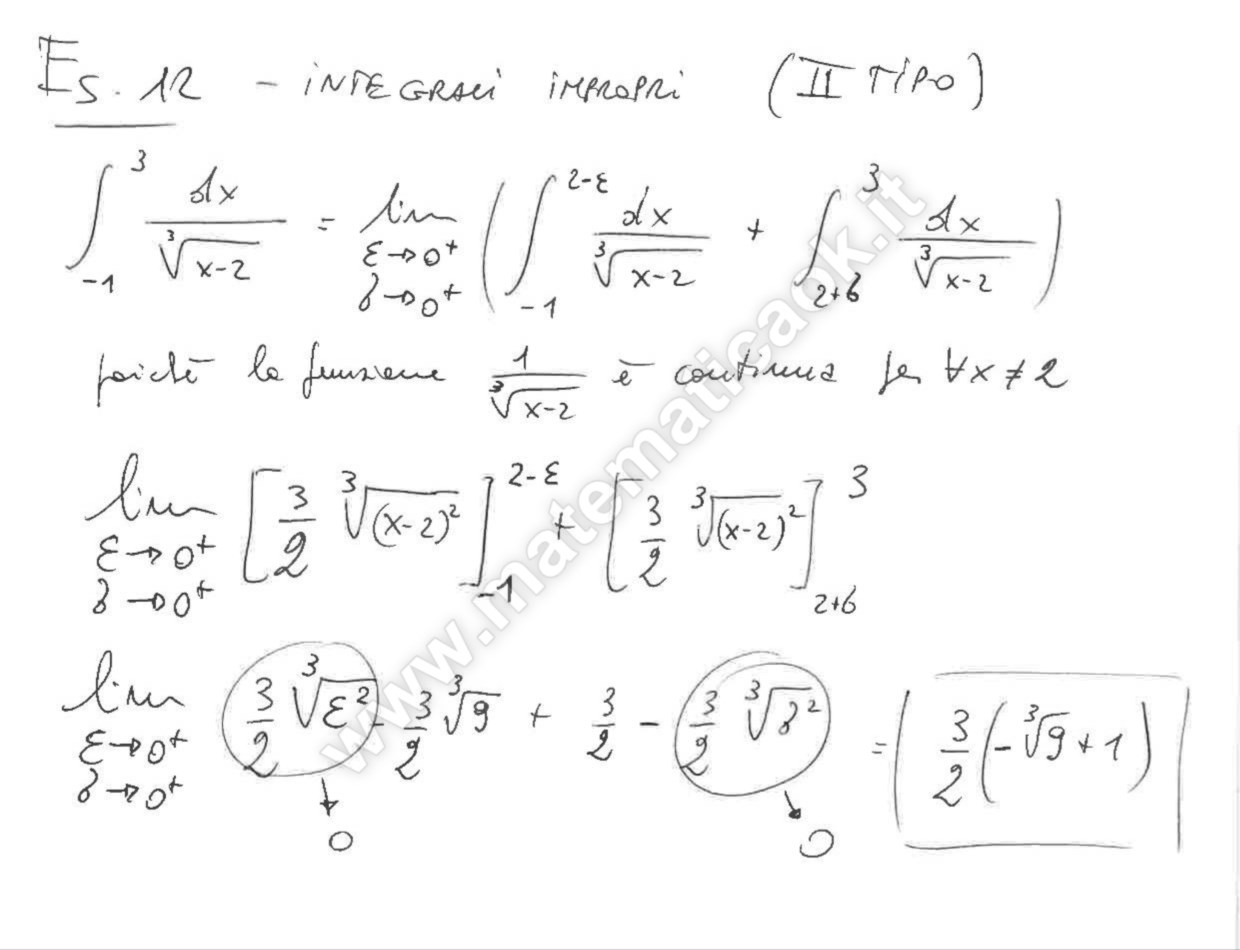 Es. 12 - INTEGRALI IMPROPRI (II TIPO)
∫_{-1}^{3} dx/∛(x-2) = lim_{ε→0⁺, δ→0⁺} ( ∫_{-1}^{2-ε} dx/∛(x-2) + ∫_{2+δ}^{3} dx/∛(x-2) )
poiché la funzione 1/∛(x-2) è continua per ∀x≠2
lim_{ε→0⁺, δ→0⁺} [3/2 ∛((x-2)²)]_{-1}^{2-ε} + [3/2 ∛((x-2)²)]_{2+δ}^{3}
lim_{ε→0⁺, δ→0⁺} 3/2 ∛(ε²) - 3/2 ∛9 + 3/2 - 3/2 ∛(δ²) = 3/2 (-∛9 + 1)
0 0
www.matematicaok.it